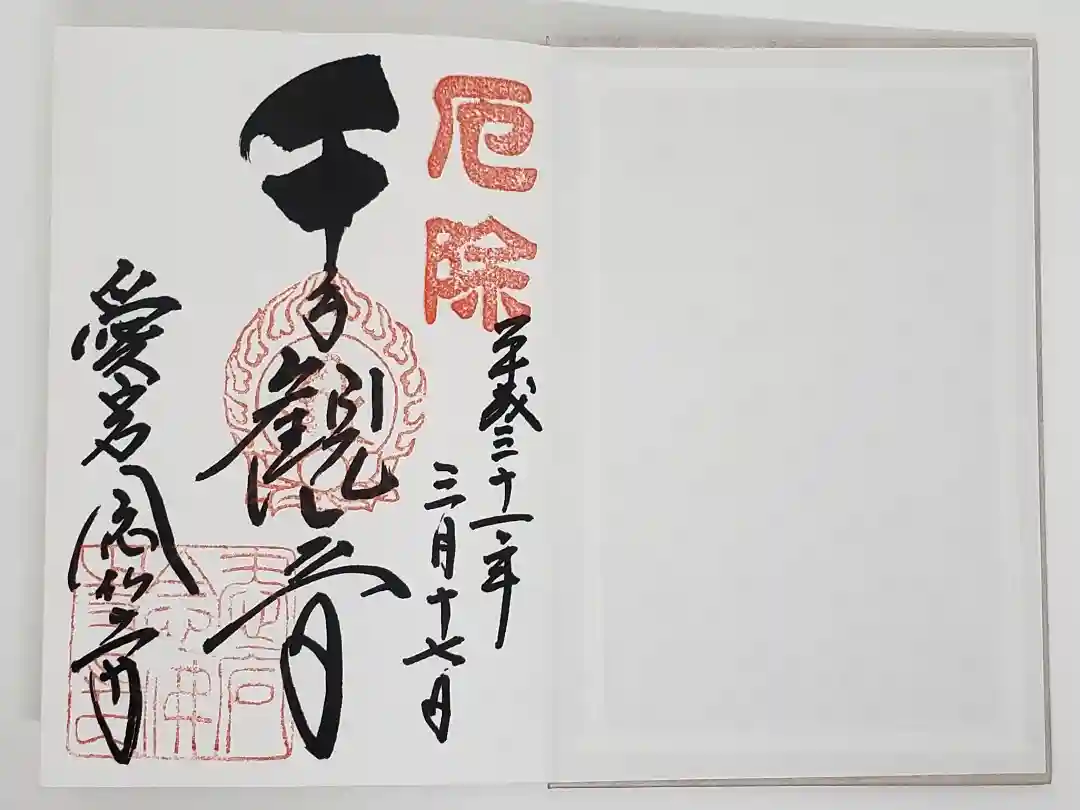 厄除
平成三十一年
三月十七日
千手観音
愛宕念仏寺